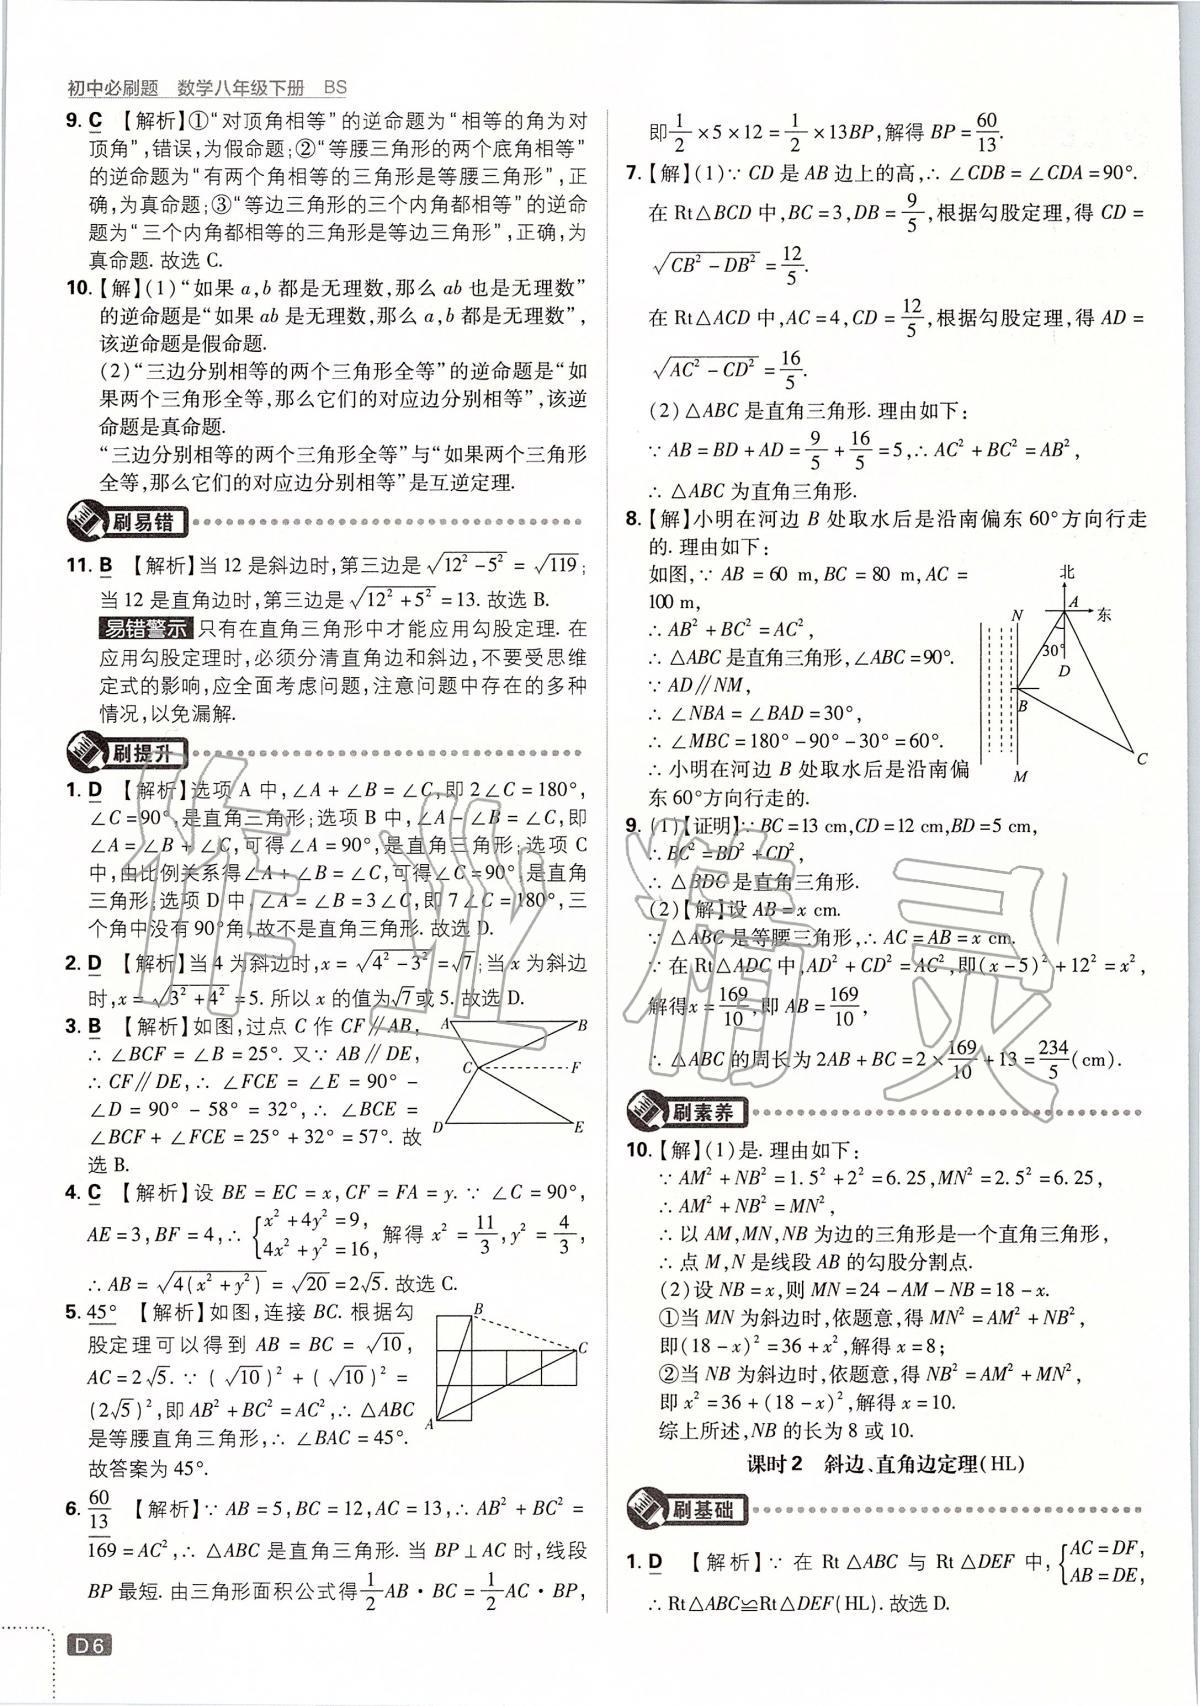 初中必刷题 数学八年级下册 BS
9. C 【解析】①“对顶角相等”的逆命题为“相等的角为对
顶角”,错误,为假命题;②“等腰三角形的两个底角相等”
的逆命题为“有两个角相等的三角形是等腰三角形”,正
确,为真命题;③“等边三角形的三个内角都相等”的逆命
题为“三个内角都相等的三角形是等边三角形”,正确,为
真命题. 故选 C.
10.【解】(1)“如果 a,b 都是无理数,那么 ab 也是无理数”
的逆命题是“如果 ab 是无理数,那么 a,b 都是无理数”,
该逆命题是假命题.
(2)“三边分别相等的两个三角形全等”的逆命题是“如
果两个三角形全等,那么它们的对应边分别相等”,该逆
命题是真命题.
“三边分别相等的两个三角形全等”与“如果两个三角形
全等,那么它们的对应边分别相等”是互逆定理.
刷易错
11. B 【解析】当 12 是斜边时,第三边是√(12²-5²) = √119;
当 12 是直角边时,第三边是√(12²+5²) =13. 故选 B.
易错警示 只有在直角三角形中才能应用勾股定理. 在
应用勾股定理时,必须分清直角边和斜边,不要受思维
定式的影响,应全面考虑问题,注意问题中存在的多种
情况,以免漏解.
刷提升
1. D 【解析】选项 A 中,∠A+∠B=∠C,即 2∠C=180°,
∠C=90°,是直角三角形;选项 B 中,∠A-∠B=∠C,即
∠A=∠B+∠C,可得∠A=90°,是直角三角形;选项 C
中,由比例关系得∠A+∠B=∠C,可得∠C=90°,是直角
三角形;选项 D 中,∠A=∠B=3∠C,即 7∠C=180°,三
个角中没有90°角,故不是直角三角形. 故选 D.
2. D 【解析】当 4 为斜边时,x=√(4²-3²)=√7;当 x 为斜边
时,x=√(3²+4²)=5. 所以 x 的值为√7或 5. 故选 D.
3. B 【解析】如图,过点 C 作 CF∥AB,
∴ ∠BCF=∠B=25°. 又∵ AB∥DE,
∴ CF∥DE,∴ ∠FCE=∠E=90°-
∠D=90°-58°=32°,∴ ∠BCE=
∠BCF+∠FCE=25°+32°=57°. 故
选 B.
A B C F D E
4. C 【解析】设 BE=EC=x,CF=FA=y. ∵ ∠C=90°,
AE=3,BF=4,∴ {x²+4y²=9, 4x²+y²=16, 解得 x²=11/3,y²=4/3,
∴ AB=√(4(x²+y²))=√20=2√5. 故选 C.
5. 45° 【解析】如图,连接 BC. 根据勾
股定理可以得到 AB=BC=√10,
AC=2√5. ∵ (√10)²+(√10)²=
(2√5)²,即 AB²+BC²=AC²,∴ △ABC
是等腰直角三角形,∴ ∠BAC=45°.
故答案为 45°.
B C A
6. 60/13 【解析】∵ AB=5,BC=12,AC=13,∴ AB²+BC²=
169=AC²,∴ △ABC 是直角三角形. 当 BP⊥AC 时,线段
BP 最短. 由三角形面积公式得1/2AB·BC=1/2AC·BP,
D6
即1/2×5×12=1/2×13BP,解得 BP=60/13.
7.【解】(1)∵ CD 是 AB 边上的高,∴ ∠CDB=∠CDA=90°.
在 Rt△BCD 中,BC=3,DB=9/5,根据勾股定理,得 CD=
√(CB²-DB²)=12/5.
在 Rt△ACD 中,AC=4,CD=12/5,根据勾股定理,得 AD=
√(AC²-CD²)=16/5.
(2)△ABC 是直角三角形. 理由如下:
∵ AB=BD+AD=9/5+16/5=5,∴ AC²+BC²=AB²,
∴ △ABC 为直角三角形.
8.【解】小明在河边 B 处取水后是沿南偏东 60°方向行走
的. 理由如下:
如图,∵ AB=60 m,BC=80 m,AC=
100 m,
∴ AB²+BC²=AC²,
∴ △ABC 是直角三角形,∠ABC=90°.
∵ AD∥NM,
∴ ∠NBA=∠BAD=30°,
∴ ∠MBC=180°-90°-30°=60°.
∴ 小明在河边 B 处取水后是沿南偏
东 60°方向行走的.
北 N A 东 30° D B C M
9. (1)【证明】∵ BC=13 cm,CD=12 cm,BD=5 cm,
∴ BC²=BD²+CD²,
∴ △BDC 是直角三角形.
(2)【解】设 AB=x cm.
∵ △ABC 是等腰三角形,∴ AC=AB=x cm.
∵ 在 Rt△ADC 中,AD²+CD²=AC²,即(x-5)²+12²=x²,
解得x=169/10,即 AB=169/10,
∴ △ABC 的周长为 2AB+BC=2×169/10+13=234/5(cm).
刷素养
10.【解】(1)是. 理由如下:
∵ AM²+NB²=1.5²+2²=6.25,MN²=2.5²=6.25,
∴ AM²+NB²=MN²,
∴ 以 AM,MN,NB 为边的三角形是一个直角三角形,
∴ 点 M,N 是线段 AB 的勾股分割点.
(2)设 NB=x,则 MN=24-AM-NB=18-x.
①当 MN 为斜边时,依题意,得 MN²=AM²+NB²,
即(18-x)²=36+x²,解得 x=8;
②当 NB 为斜边时,依题意,得 NB²=AM²+MN²,
即 x²=36+(18-x)²,解得 x=10.
综上所述,NB 的长为 8 或 10.
课时2 斜边、直角边定理(HL)
刷基础
1. D 【解析】∵ 在 Rt△ABC 与 Rt△DEF 中,{AC=DF, AB=DE,
∴ Rt△ABC≌Rt△DEF(HL). 故选 D.
作业精灵